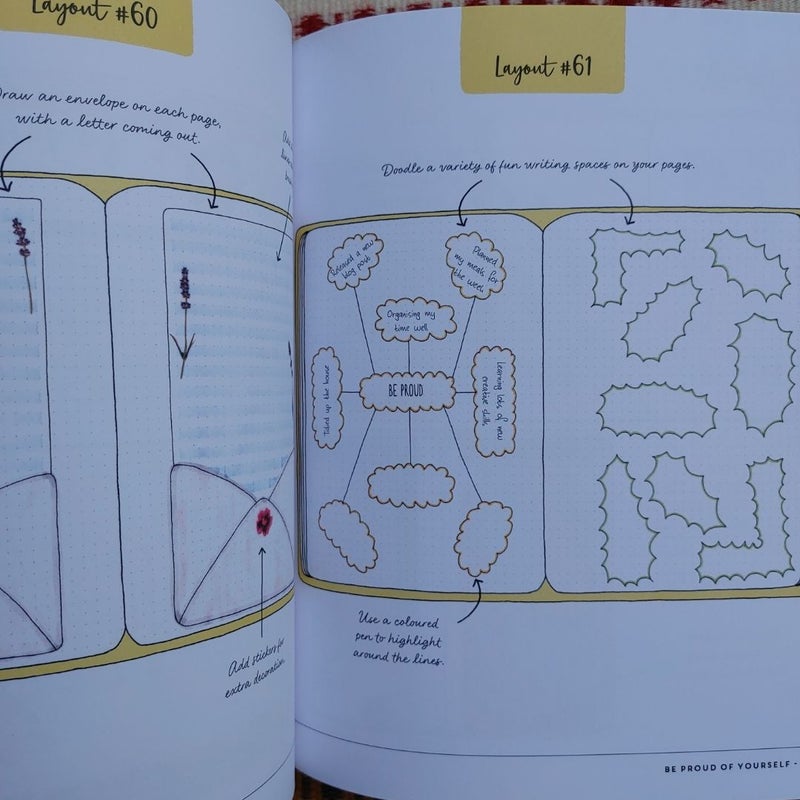 Layout #60
Draw an envelope on each page,
with a letter coming out.
Add stickers for
extra decoration.
Layout #61
Doodle a variety of fun writing spaces on your pages.
Released a new
blog post
Planned
my meals for
the week
Organising my
time well
Tidied up the house
BE PROUD
Learning lots of new
creative skills
Use a coloured
pen to highlight
around the lines.
BE PROUD OF YOURSELF -